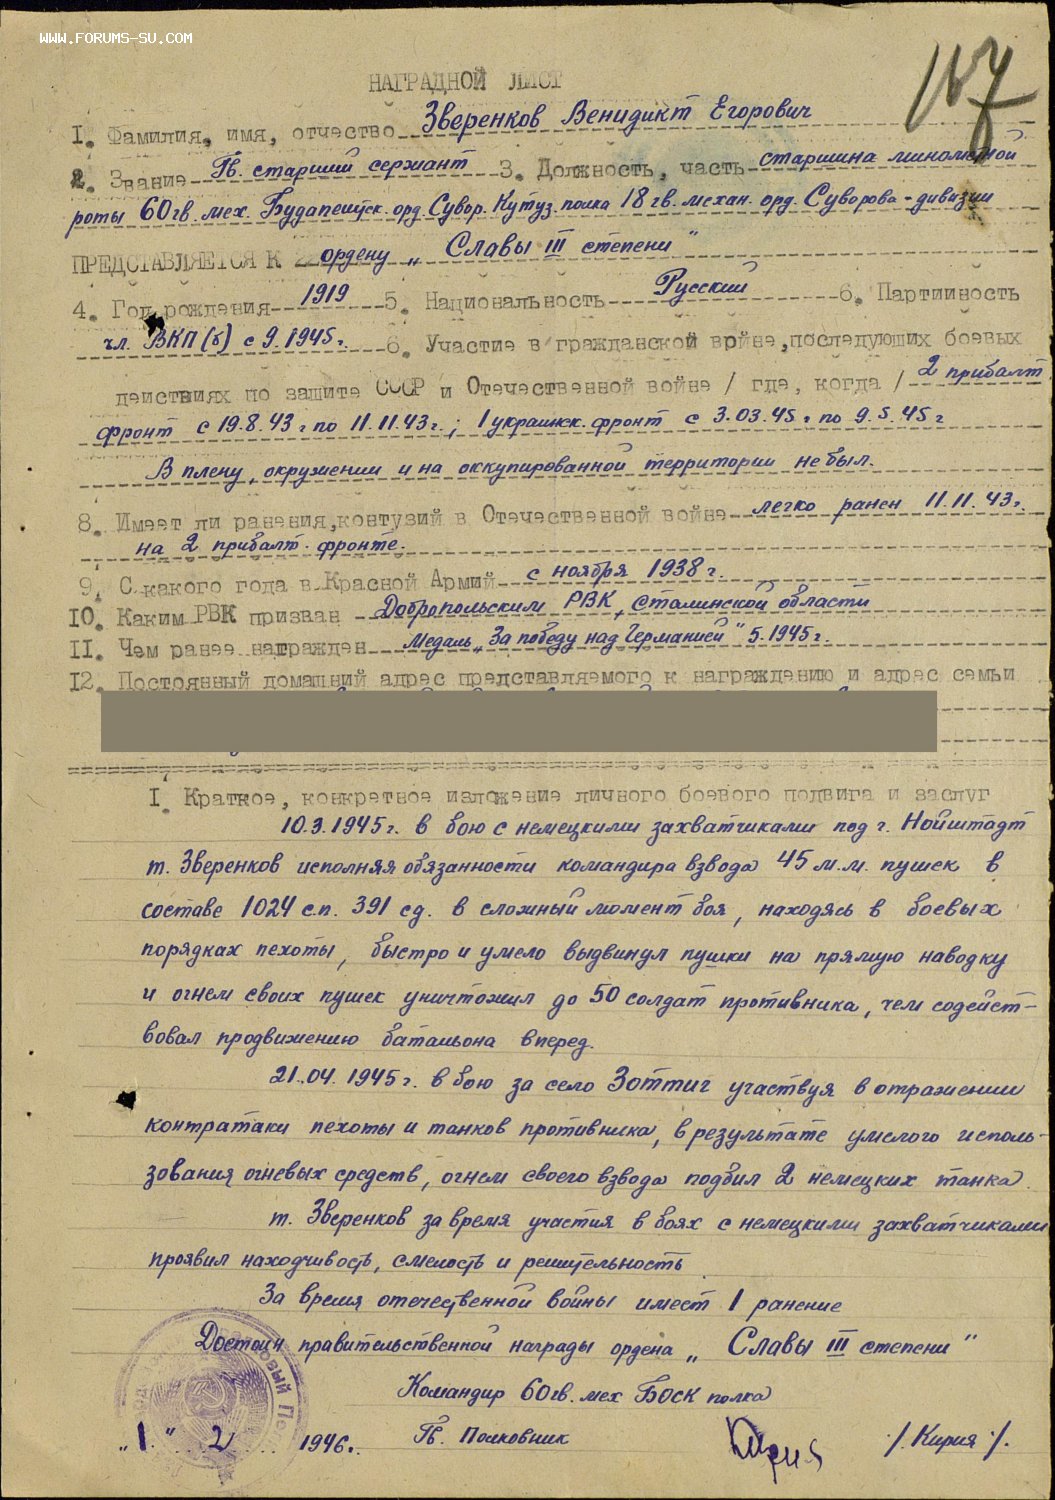 WWW.FORUMS-SU.COM
НАГРАДНОЙ ЛИСТ
I. Фамилия, имя, отчество Зверенков Венидикт Егорович
2. Звание Гв. старший сержант 3. Должность, часть старшина минометной
роты 60 гв. мех. Будапештск. орд. Сувор. Кутуз. полка 18 гв. механ. орд. Суворова-дивизии
ПРЕДСТАВЛЯЕТСЯ К ордену „Славы III степени"
4. Год рождения 1919 5. Национальность Русский 6. Партийность
чл. ВКП(б) с 9.1945г. 6. Участие в гражданской войне, последующих боевых
действиях по защите СССР и Отечественной войне / где, когда / 2 прибалт
фронт с 19.8.43 г по 11.11.43г.; 1 украинск. фронт с 3.03.45 г по 9.5.45 г
В плену, окружении и на оккупированной территории не был.
8. Имеет ли ранения, контузий в Отечественной войне легко ранен 11.11.43г.
на 2 прибалт. фронте.
9. С какого года в Красной Армий с ноября 1938 г.
10. Каким РВК призван Добропольским РВК, Сталинской области
II. Чем ранее награжден Медаль „За победу над Германией" 5.1945 г.
12. Постоянный домашний адрес представляемого к награждению и адрес семьи
I. Краткое, конкретное изложение личного боевого подвига и заслуг
10.3.1945г. в бою с немецкими захватчиками под г. Нойштадт
т. Зверенков исполняя обязанности командира взвода 45 м.м. пушек в
составе 1024 с.п. 391 сд. в сложный момент боя, находясь в боевых
порядках пехоты, быстро и умело выдвинул пушки на прямую наводку
и огнем своих пушек уничтожил до 50 солдат противника, чем содейст-
вовал продвижению батальона вперед.
21.04.1945г. в бою за село Зоттиг участвуя в отражении
контратаки пехоты и танков противника, в результате умелого исполь-
зования огневых средств, огнем своего взвода подбил 2 немецких танка.
т. Зверенков за время участия в боях с немецкими захватчиками
проявил находчивость, смелость и решительность
За время отечественной войны имеет 1 ранение
Достоин правительственной награды ордена „Славы III степени"
Командир 60 гв. мех БОСК полка
„1." 2 1946г. Гв. Полковник /. Кирия ./.